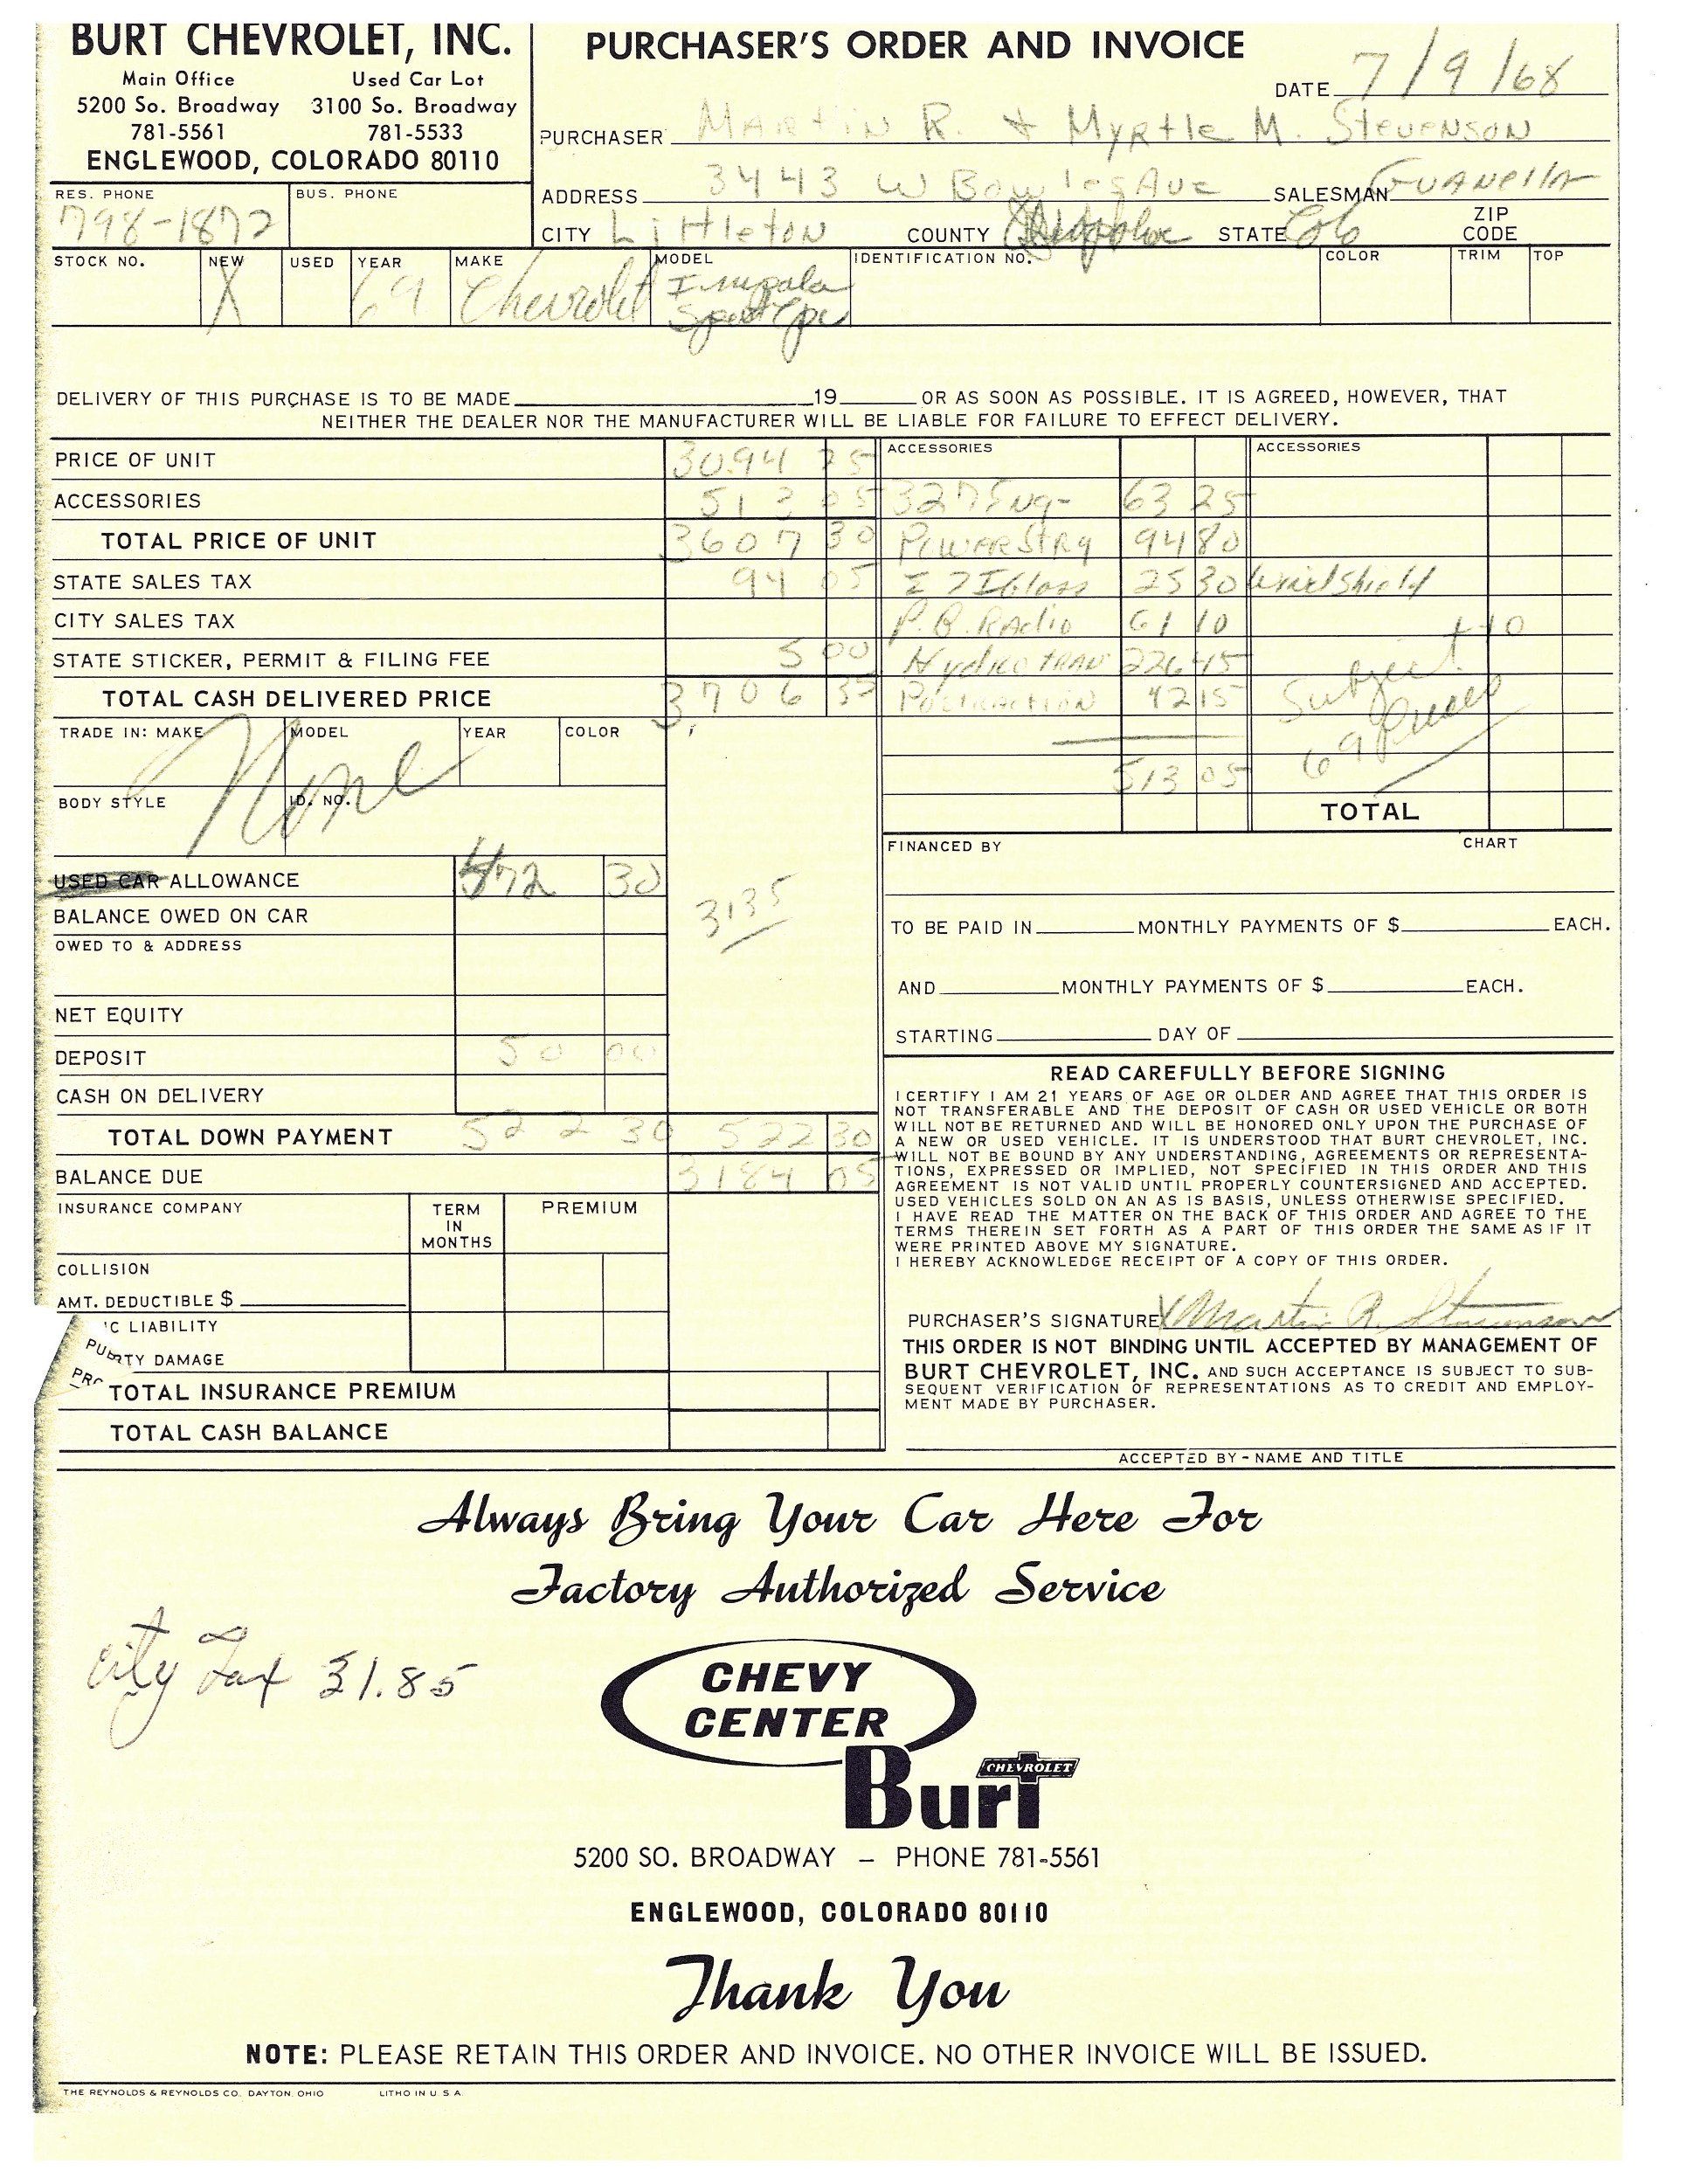 BURT CHEVROLET, INC.
Main Office Used Car Lot
5200 So. Broadway 3100 So. Broadway
781-5561 781-5533
ENGLEWOOD, COLORADO 80110
PURCHASER'S ORDER AND INVOICE
DATE 7/9/68
PURCHASER Martin R. + Myrtle M. Stevenson
ADDRESS 3443 W Bowles Ave SALESMAN Guanella
CITY Littleton COUNTY STATE Colo ZIP CODE
RES. PHONE BUS. PHONE
798-1872
STOCK NO. NEW USED YEAR MAKE MODEL IDENTIFICATION NO. COLOR TRIM TOP
X 69 Chevrolet Impala
Sport Cpe
DELIVERY OF THIS PURCHASE IS TO BE MADE 19 OR AS SOON AS POSSIBLE. IT IS AGREED, HOWEVER, THAT
NEITHER THE DEALER NOR THE MANUFACTURER WILL BE LIABLE FOR FAILURE TO EFFECT DELIVERY.
PRICE OF UNIT 3094 25 ACCESSORIES ACCESSORIES
ACCESSORIES 513 05 327 Eng- 63 25
TOTAL PRICE OF UNIT 3607 30 Power Strg 94 80
STATE SALES TAX 94 05 Glass 25 30 Windshield
CITY SALES TAX P.B. Radio 61 10
STATE STICKER, PERMIT & FILING FEE 5 00 Hydro tran 226 45
TOTAL CASH DELIVERED PRICE 3706 35 Positraction 42 15
Subject to
69 Prices
513 05
TOTAL
TRADE IN: MAKE MODEL YEAR COLOR
None
BODY STYLE I.D. NO.
USED CAR ALLOWANCE 472 30
3135
BALANCE OWED ON CAR
OWED TO & ADDRESS
NET EQUITY
DEPOSIT 50 00
CASH ON DELIVERY
TOTAL DOWN PAYMENT 522 30 522 30
BALANCE DUE 3184 05
INSURANCE COMPANY TERM IN MONTHS PREMIUM
COLLISION
AMT. DEDUCTIBLE $
IC LIABILITY
PUB
RTY DAMAGE
PRO
TOTAL INSURANCE PREMIUM
TOTAL CASH BALANCE
FINANCED BY CHART
TO BE PAID IN MONTHLY PAYMENTS OF $ EACH.
AND MONTHLY PAYMENTS OF $ EACH.
STARTING DAY OF
READ CAREFULLY BEFORE SIGNING
I CERTIFY I AM 21 YEARS OF AGE OR OLDER AND AGREE THAT THIS ORDER IS
NOT TRANSFERABLE AND THE DEPOSIT OF CASH OR USED VEHICLE OR BOTH
WILL NOT BE RETURNED AND WILL BE HONORED ONLY UPON THE PURCHASE OF
A NEW OR USED VEHICLE. IT IS UNDERSTOOD THAT BURT CHEVROLET, INC.
WILL NOT BE BOUND BY ANY UNDERSTANDING, AGREEMENTS OR REPRESENTA-
TIONS, EXPRESSED OR IMPLIED, NOT SPECIFIED IN THIS ORDER AND THIS
AGREEMENT IS NOT VALID UNTIL PROPERLY COUNTERSIGNED AND ACCEPTED.
USED VEHICLES SOLD ON AN AS IS BASIS, UNLESS OTHERWISE SPECIFIED.
I HAVE READ THE MATTER ON THE BACK OF THIS ORDER AND AGREE TO THE
TERMS THEREIN SET FORTH AS A PART OF THIS ORDER THE SAME AS IF IT
WERE PRINTED ABOVE MY SIGNATURE.
I HEREBY ACKNOWLEDGE RECEIPT OF A COPY OF THIS ORDER.
PURCHASER'S SIGNATURE X Martin R. Stevenson
THIS ORDER IS NOT BINDING UNTIL ACCEPTED BY MANAGEMENT OF
BURT CHEVROLET, INC. AND SUCH ACCEPTANCE IS SUBJECT TO SUB-
SEQUENT VERIFICATION OF REPRESENTATIONS AS TO CREDIT AND EMPLOY-
MENT MADE BY PURCHASER.
ACCEPTED BY - NAME AND TITLE
Always Bring Your Car Here For
Factory Authorized Service
City Tax 31.85
CHEVY
CENTER
CHEVROLET
Burt
5200 SO. BROADWAY – PHONE 781-5561
ENGLEWOOD, COLORADO 80110
Thank You
NOTE: PLEASE RETAIN THIS ORDER AND INVOICE. NO OTHER INVOICE WILL BE ISSUED.
THE REYNOLDS & REYNOLDS CO. DAYTON, OHIO LITHO IN U.S.A.